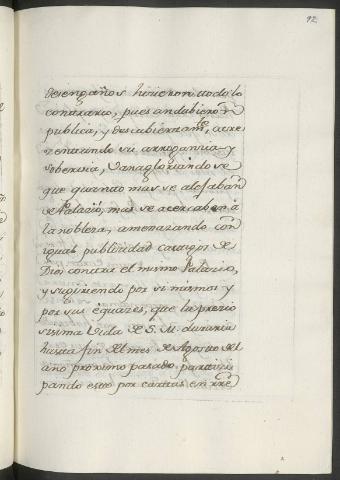 92
desengaños hicieron todo lo
contrario, pues andubiero͠n
publica, y descubiertam.te acre
zentando su arrogancia y
soberbia, vanagloriandose
que quando mas se alejaban
de Palacio, mas se acercaban à
la nobleza, amenazando con
igual publicidad castigos de
Dios contra el mismo Palacio,
y sugiriendo por si mismos y
por sus equazes, que la precio
sisima Vida de S. M. duraria
hasta fin del mes de Agosto del
año proximo pasado partizi
pando esto por cartas